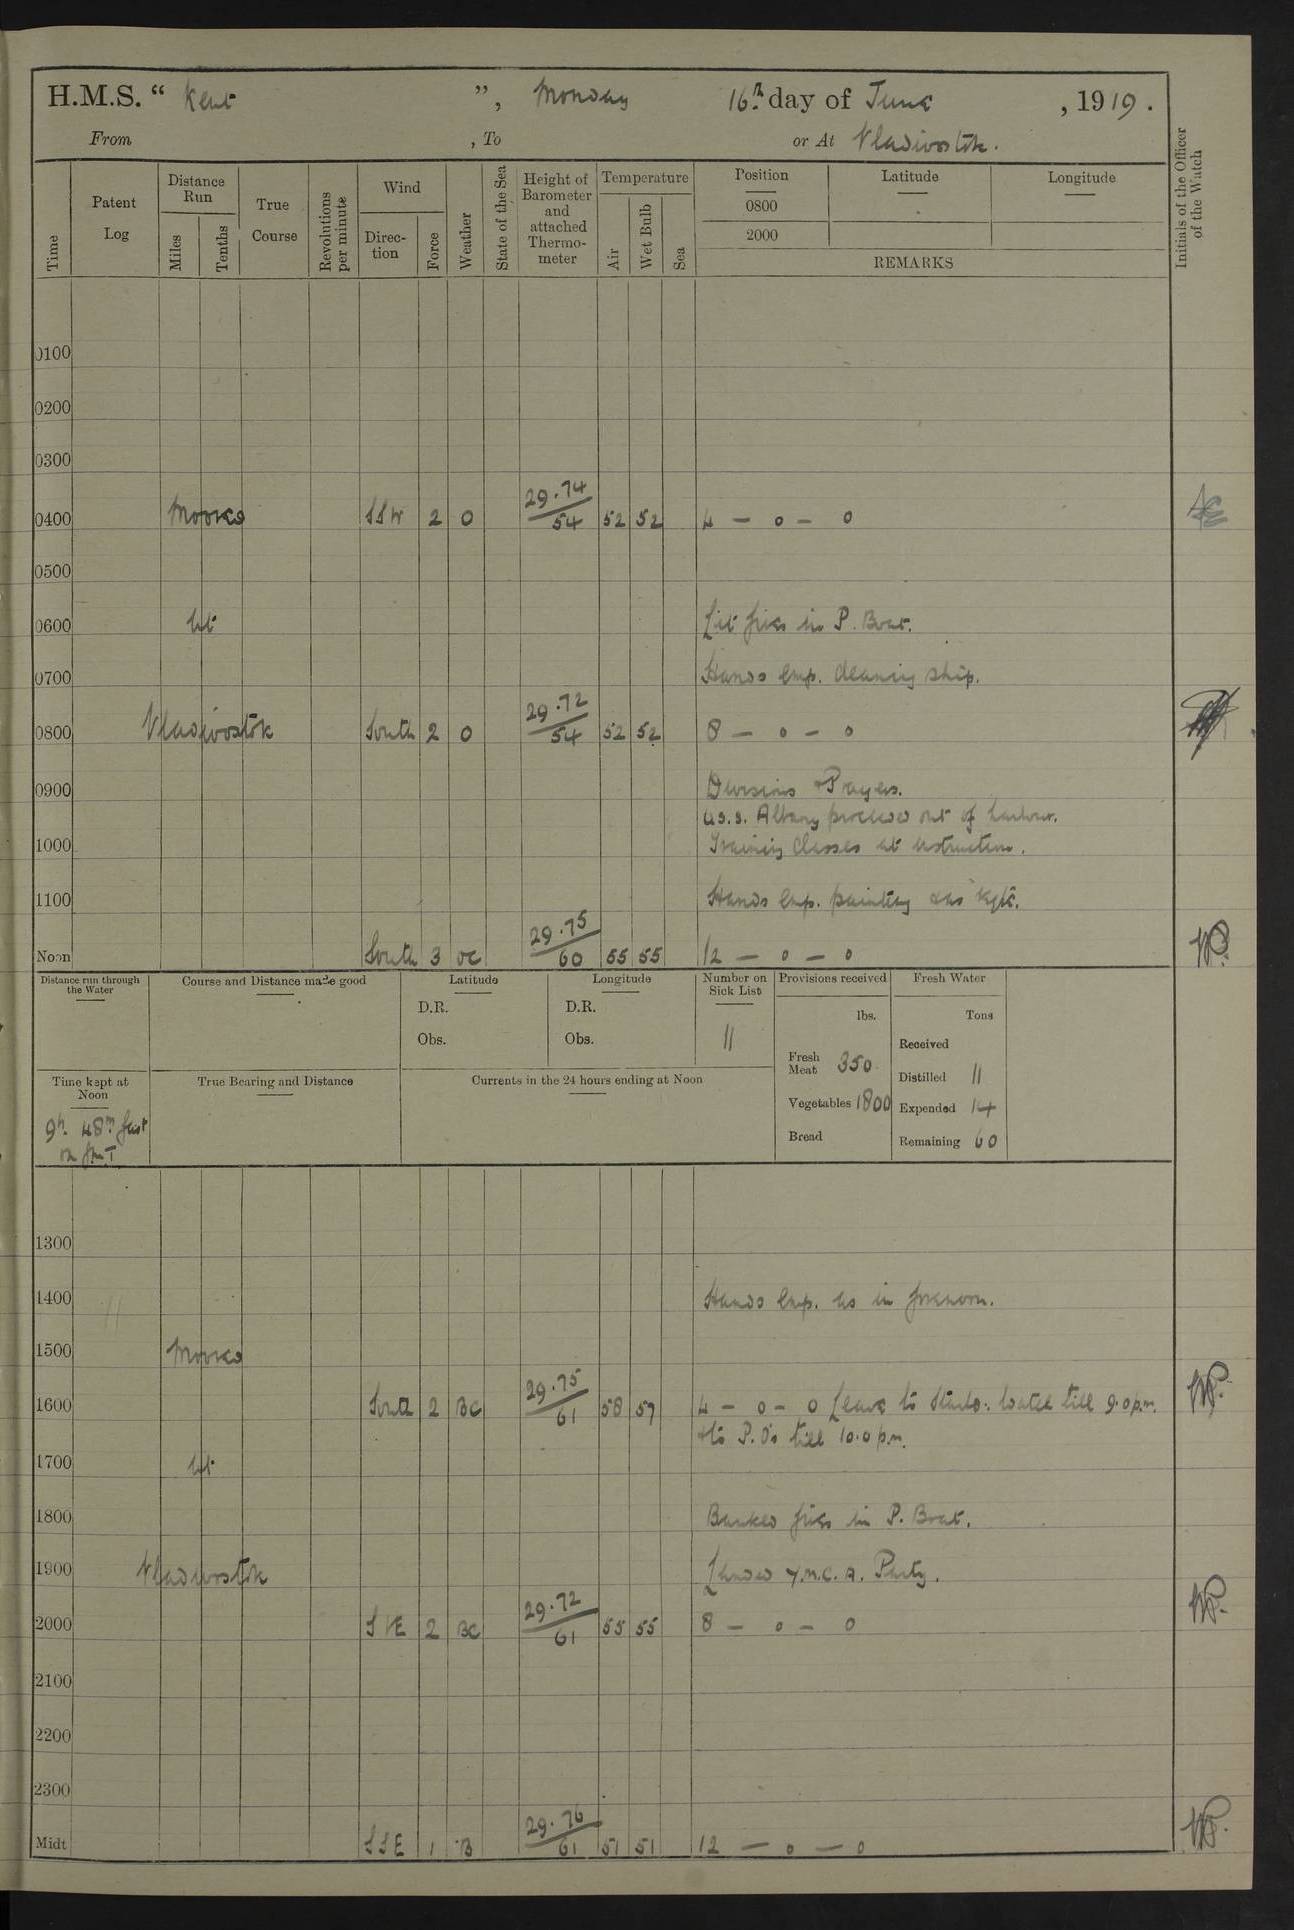 H.M.S. “ Kent ”, Monday 16th day of June, 1919.
From , To or At Vladivostok.
Time
Patent Log
Distance Run
Miles
Tenths
True Course
Revolutions per minute
Wind
Direction
Force
Weather
State of the Sea
Height of Barometer and attached Thermometer
Temperature
Air
Wet Bulb
Sea
Position
0800
2000
Latitude
Longitude
REMARKS
Initials of the Officer of the Watch
0100
0200
0300
0400 Moored SSW 2 O 29.74/54 52 52 4 — 0 — 0
0500
0600 at Lit fires in P. Boat.
0700 Hands emp. cleaning ship.
0800 Vladivostok South 2 O 29.72/54 52 52 8 — 0 — 0
0900 Divisions + Prayers.
U.S.S. Albany proceeded out of harbour.
1000 Training Classes at instruction.
1100 Hands emp. painting and as reqte.
Noon South 3 OC 29.75/60 55 55 12 — 0 — 0
Distance run through the Water
Course and Distance made good
Latitude
D.R.
Obs.
Longitude
D.R.
Obs.
Number on Sick List
11
Provisions received
lbs.
Fresh Meat 350
Vegetables 1800
Bread
Fresh Water
Tons
Received
Distilled 11
Expended 14
Remaining 60
Time kept at Noon
9h. 48m fast on GMT
True Bearing and Distance
Currents in the 24 hours ending at Noon
1300
1400 Hands emp. as in forenoon.
1500 Moored
1600 South 2 BC 29.75/61 58 57 4 — 0 — 0 Leave to Starbd. watch till 9.0 p.m.
+ to P.O's till 10.0 p.m.
1700 at
1800 Banked fires in P. Boat.
1900 Vladivostok Landed Y.M.C.A. Party.
2000 SSE 2 BC 29.72/61 55 55 8 — 0 — 0
2100
2200
2300
Midt SSE 1 B 29.76/61 51 51 12 — 0 — 0